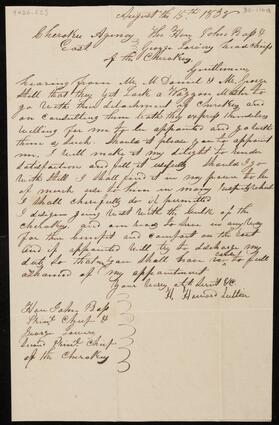 August the 15th 1838
Cherokee Agency The Hon John Ross &
East George Lowrey head chiefs
of the Cherokee
Gentlemen
hearing from Mr McDaniel & Mr George
Still that they yet Lack a Waggon Master to
go With their detachment of Cherokey and
on consulting them both they express themselves
Willing for me to be appointed and go with
them as such. Should it please you to appoint
me, I will make it my delight to render
satisfaction and fill it usefully Should I go
With Still I Shall find it in my power to be
of much use to him in many respects which
I Shall cheerfully do if permitted
I design going West With the bulk of the
Cherokey and am ready to serve in any way
for their benefit and comfort on the rout
and if appointed Will try to discharge my
duty so that you Shall have no cause to feel
ashamed of my appointment
Your Very Obt Servt &c
H. Howard Sutton
Hon John Ross
Prinl Chief &
George Lowrey
Prinl Chief
of the Cherokey